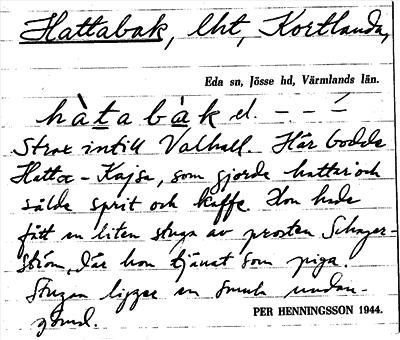 Hattabak, lht, Kortlanda,
Eda sn, Jösse hd, Värmlands län.
hàtabàk el. – – –́
Strax intill Valhall. Här bodde
Hatta-Kajsa, som gjorde hattar och
sålde sprit och kaffe. Hon hade
fått en liten stuga av prosten Schager-
ström, där hon tjänat som piga.
Stugan ligger en smula undan-
gömd.
PER HENNINGSSON 1944.